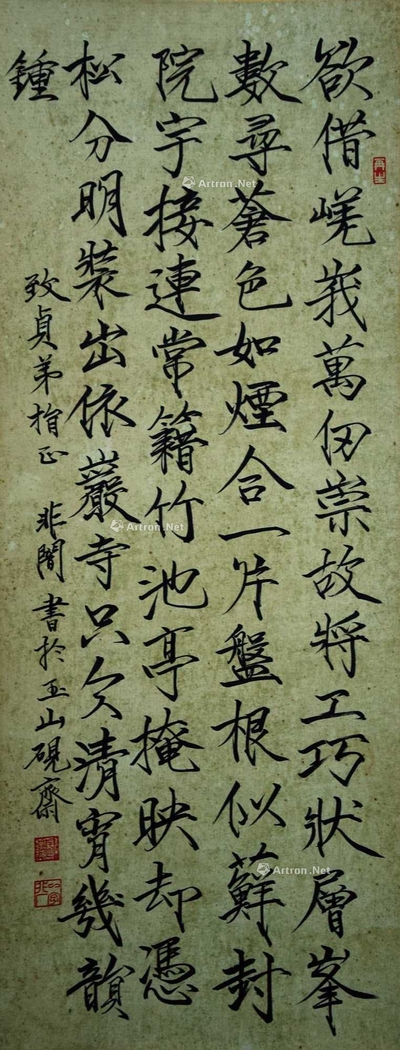 欲借嵯峨萬仞崇故將工巧狀層峯
數尋蒼色如煙合一片盤根似蘚封
院宇接連常籍竹池亭掩映却憑
松分明裝出依巖寺只欠清宵幾韻
鍾
致貞弟指正 非闇書於玉山硯齋
Artron.Net
Artron.Net
Artron.Net